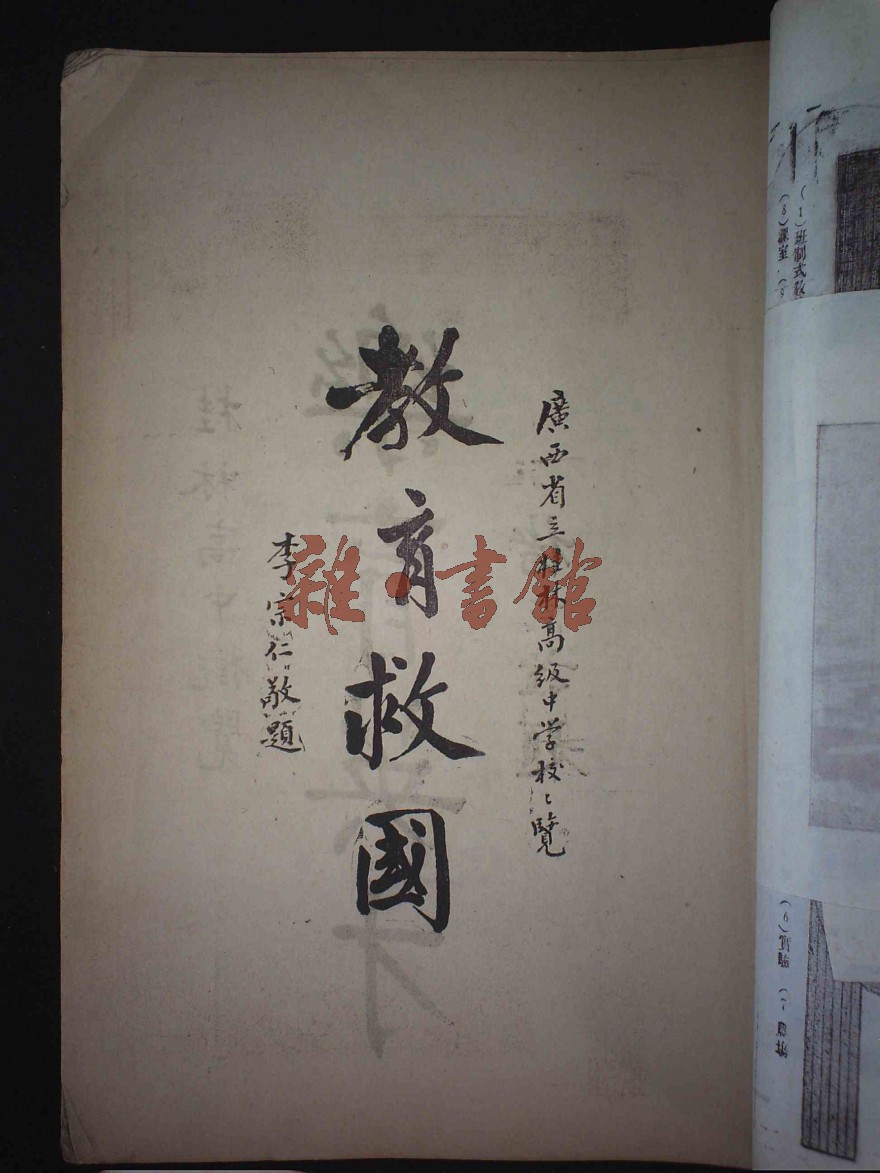 廣西省立桂林高級中学校〻覽
教育救國
李宗仁敬題
雜·書館
(1)班制式教
(8)課室
(6)實驗